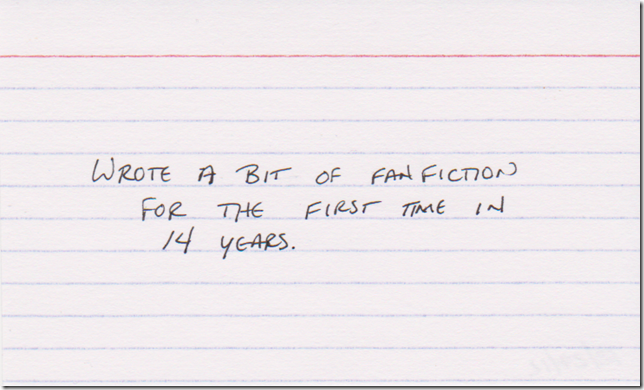 WROTE A BIT OF FANFICTION
FOR THE FIRST TIME IN
14 YEARS.